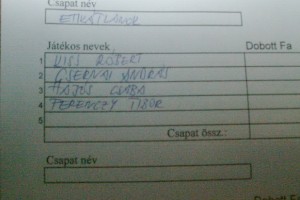 Csapat név
Játékos nevek, Dobott Fa
1 KISS RÓBERT
2 CSERNAI ANDRÁS
3 HAJÓS CSABA
4 FERENCZY TIBOR
5
Csapat össz.:
Csapat név
Dobott Fa